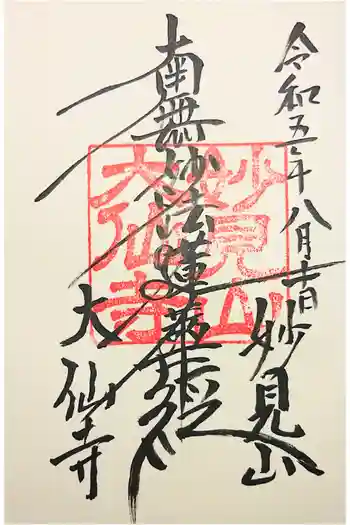 令和五年八月吉日
妙見山
南無妙法蓮華経
大仙寺
妙見山
大仙寺